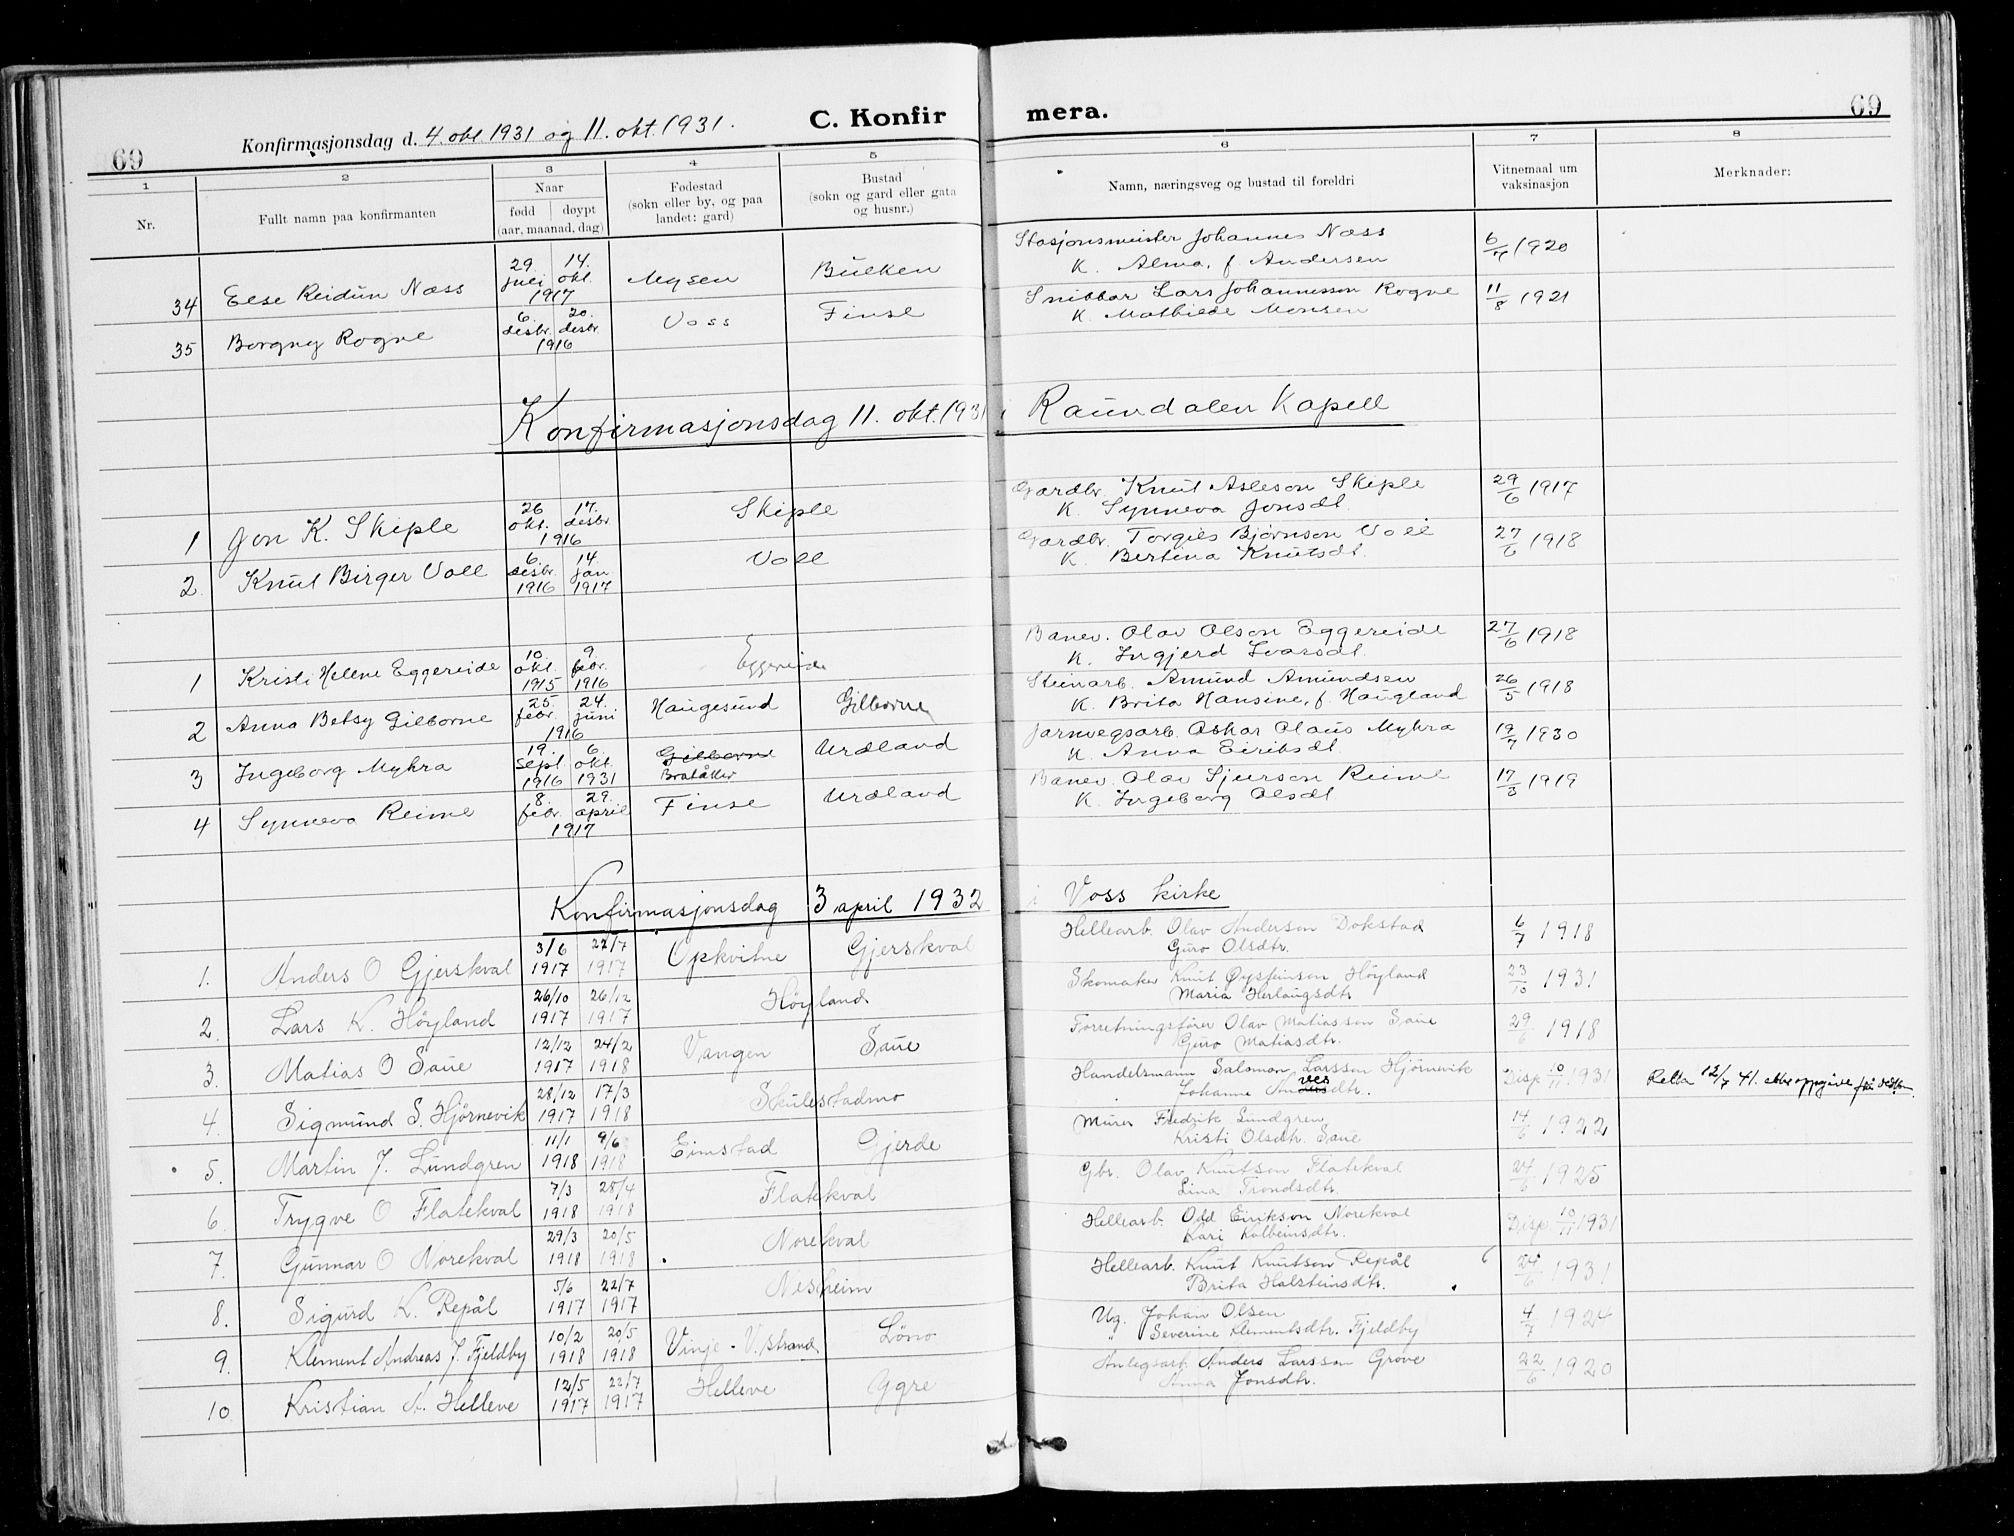 69
Konfirmasjonsdag d. 4. okt. 1931 og 11. okt. 1931.
C. Konfir
mera.
69
1 2 3 4 5 6 7 8
Nr.
Fullt namn paa konfirmanten
Naar
fødd døypt
(aar, maanad, dag)
Fødestad
(sokn eller by, og paa
landet: gard)
Bustad
(sokn og gard eller gata
og husnr.)
Namn, næringsveg og bustad til foreldri
Vitnemaal um
vaksinasjon
Merknader:
34 Else Reidun Næss 29. juli 14. okt. 1917 Mysen Bulken Stasjonsmeister Johannes Næss 6/7 1920
K. Alma, f. Andersen
35 Borgny Rogne 6. desbr. 20. desbr. 1916 Voss Finse Snikkar Lars Johannesson Rogne 11/8 1921
K. Mathilde Monsen
Konfirmasjonsdag 11. okt. 1931 i Raundalen Kapell
1 Jon K. Skiple 26 okt. 17. desbr. 1916 Skiple Gardbr. Knut Asleson Skiple 29/6 1917
K. Synneva Jonsdt.
2. Knut Birger Voll 6. desbr. 1916 14. jan 1917 Voll Gardbr. Torgils Bjørnson Voll 27/6 1918
K. Bertina Knutsdt.
1 Kristi Helene Eggereide 10. okt. 1915 9. febr. 1916 Eggereide Banev. Olav Olson Eggereide 27/6 1918
K. Ingjerd Ivarsdt.
2 Anna Betsy Gilborne 25. febr. 24. juni 1916 Haugesund Gilborne Steinarb. Amund Amundsen 26/5 1918
K. Brita Hansine, f. Haugland
3 Ingeborg Myhra 19. sept. 1916 6. okt. 1931 Gilborne Bratåker Urdland Jarnvegsarb. Oskar Olaus Myhra 19/7 1930
K. Anna Eiriksdt.
4 Synneva Reime 8. febr. 29. april 1917 Finse Urdland Banev. Olav Sjurson Reime 17/8 1919
K. Ingeborg Olsdt
Konfirmasjonsdag 3 april 1932 i Voss kirke
1. Anders O Gjerskval 3/6 1917 22/7 1917 Opkvitne Gjerskval Hellearb. Olav Anderson Dokstad 6/7 1918
Guro Olsdtr.
2. Lars K. Höyland 26/10 1917 26/12 1917 Höyland Skomaker Knut Øysteinson Höyland 23/10 1931
Maria Herlaugsdtr
3. Matias O Saue 12/12 1917 24/2 1918 Vangen Saue Forretningsfører Olav Matiasson Saue 29/6 1918
Guro Matiasdtr.
4. Sigmund S. Hjörnevik 28/12 1917 17/3 1918 Skulestadmo Handelsmann Salomon Larsson Hjörnevik Disp. 10/11 1931 Retta 12/7 41. etter oppgåve frå
Johanne
5. Martin J. Lundgren 11/1 1918 9/6 1918 Eimstad Gjerde Murer Fredrik Lundgren 14/6 1922
Kristi Olsdtr. Saue
6. Trygve O Flatekval 7/3 1918 28/4 1918 Flatekval Gbr. Olav Knutson Flatekval 24/6 1925
Lina Trondsdtr.
7. Gunnar O Norekval 29/3 1918 20/5 1918 Norekval Hellearb. Odd Eirikson Norekval Disp. 10/11 1931
Kari Kolbeinsdtr.
8. Sigurd K. Repål 5/6 1917 22/7 1917 Nesheim Hellearb. Knut Knutson Repål 24/6 1931
Brita Halsteinsdtr.
9. Klement Andreas J. Fjeldby 10/2 1918 20/5 1918 Vinje - V.strand Löno Ug. Johan Olsen 4/7 1924
" Severine Klementsdtr. Fjeldby
10. Kristian A. Helleve 12/5 1917 22/7 1917 Helleve Ygre Anlegsarb. Anders Larsson Grove 22/6 1920
Anna Jonsdtr.